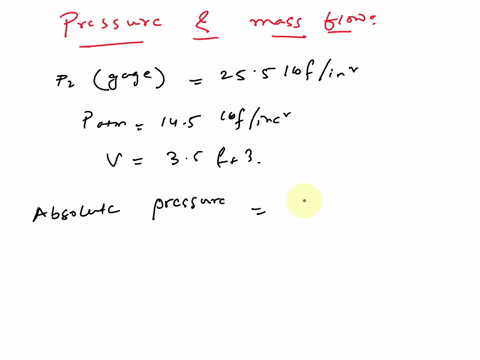 Pressure & mass flow:
P2 (gage) = 25.5 lbf/in²
Patm = 14.5 lbf/inc²
V = 3.5 ft3.
Absolute pressure =